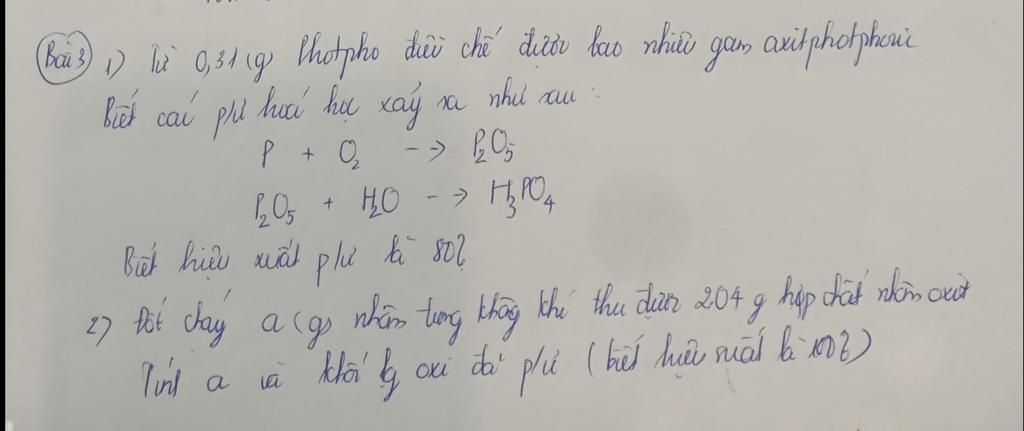 Bài 3 1) Từ 0,31 (g) Photpho điều chế được bao nhiêu gam axitphotphoric
Biết các p/ứ hoá học xảy ra như sau :
P + O2 --> P2O5
P2O5 + H2O --> H3PO4
Biết hiệu suất p/ứ là 80%
2) Đốt cháy a (g) nhôm trong không khí thu được 2,04 g hợp chất nhôm oxit
Tính a và khối lg oxi đã p/ứ (biết hiệu suất là 100%)